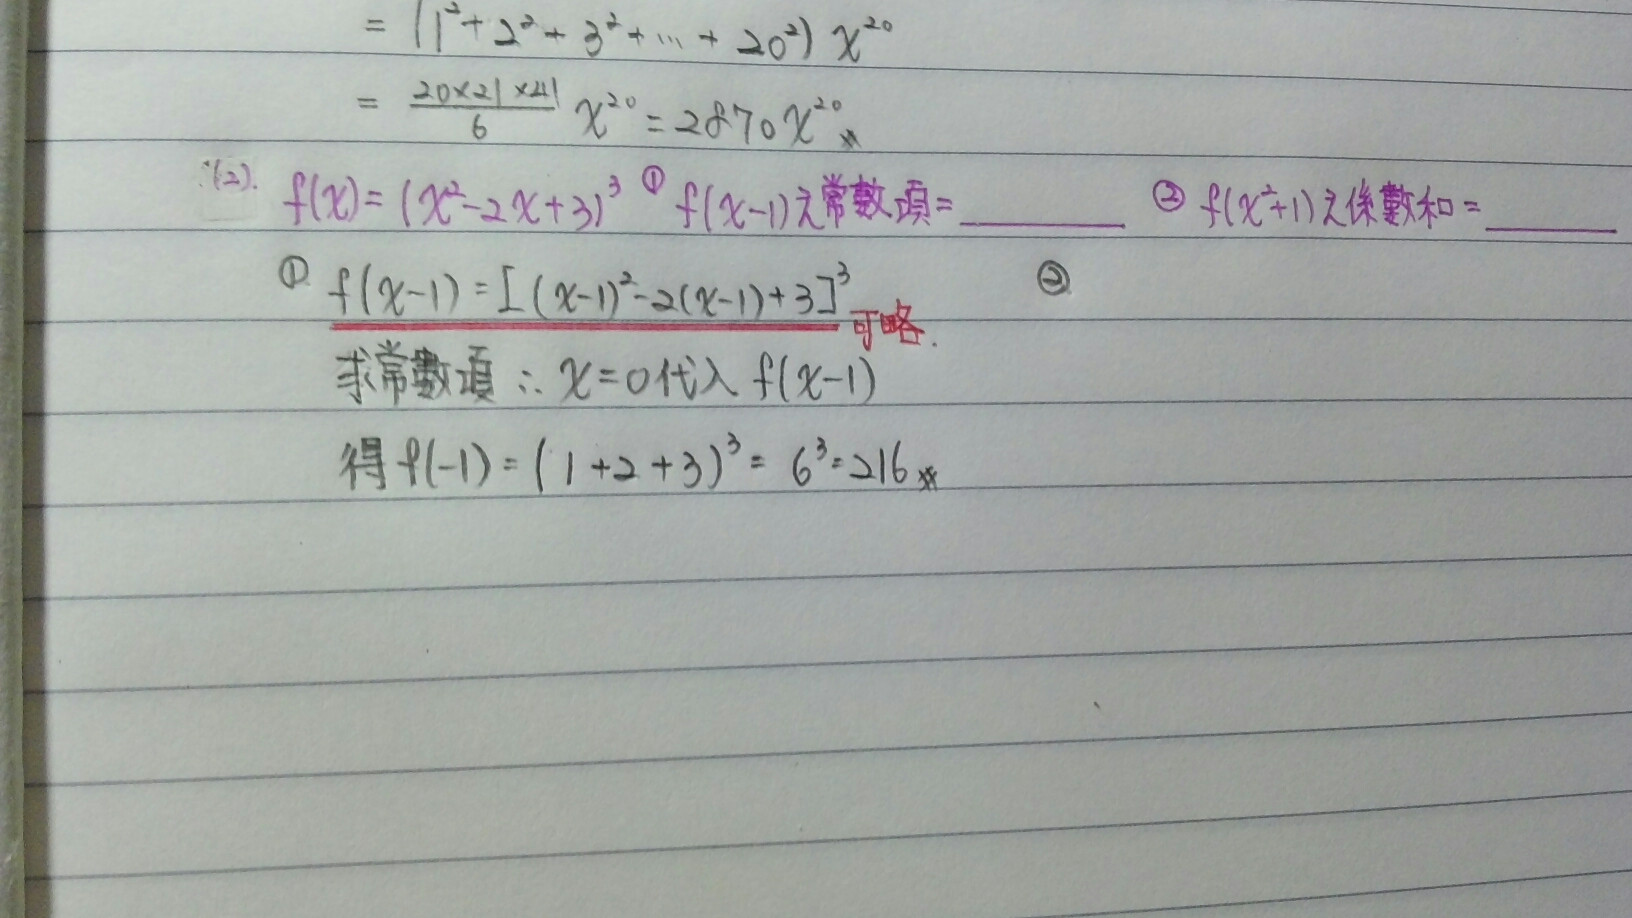 = (1²+2²+3²+…+20²) x²⁰
= 20×21×41/6 x²⁰ = 2870x²⁰
(2). f(x) = (x²-2x+3)³ ① f(x-1)之常數項=________ ② f(x²+1)之係數和=________
① f(x-1) = [(x-1)²-2(x-1)+3]³ 可略. ②
求常數項 ∴ x=0代入 f(x-1)
得 f(-1) = (1+2+3)³ = 6³ = 216